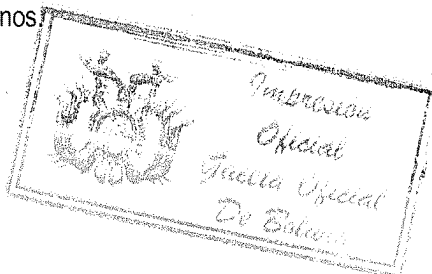 nos.
Impresion
Oficial
Gaceta Oficial
De Bolivia